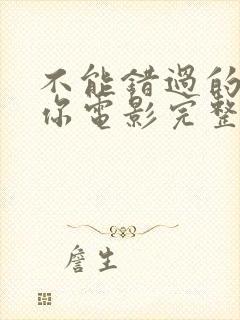 不能错過的
你電影完整
詹生